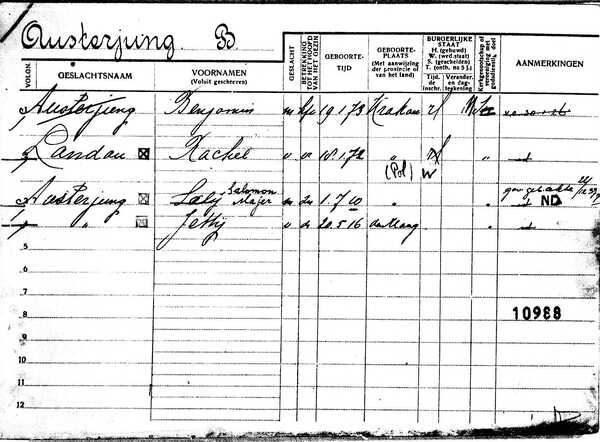 Austerjung B.
VOLGN.
GESLACHTSNAAM
VOORNAMEN
(Voluit geschreven)
GESLACHT
BETREKKING TOT HET HOOFD VAN HET GEZIN
GEBOORTE-
TIJD
GEBOORTE-
PLAATS
(Met aanwijzing
der provincie of
van het land)
BURGERLIJKE
STAAT
H. (gehuwd)
W. (wed. staat)
S. (gescheiden)
T. (ontb. na 5 j.)
Tijd. de Inschr.
Verander. en dag-teekening
Kerkgenootschap of vereeniging met godsdienstig doel
AANMERKINGEN
Austerjung Benjamin m 19 1 73 Krakau
Landau Rachel v 18.1.72 "
(Pol) W
Austerjung Saly Salomon Majer m 1.7.00 "
ND
" Jetty v 20.5.16 den Haag "
5
6
7
8
10988
9
10
11
12